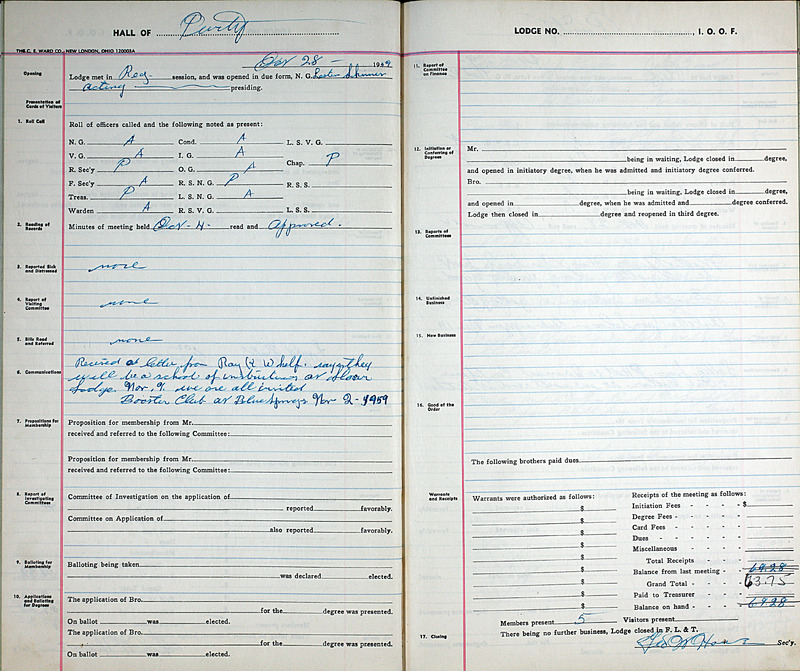 HALL OF Purity
THE C. E. WARD CO., NEW LONDON, OHIO 120003A
Oct 28 - 1959
Opening
Lodge met in Reg. session, and was opened in due form, N. G. Lester
acting presiding.
Presentation of Cards of Visitors
1. Roll Call
Roll of officers called and the following noted as present:
N. G. A Cond. A L. S. V. G.
V. G. A I. G. A
R. Sec'y P O. G. A Chap. P
F. Sec'y A R. S. N. G. P R. S. S.
Treas. P L. S. N. G. A
Warden A R. S. V. G. L. S. S.
2. Reading of Records
Minutes of meeting held Oct-4- read and Approved.
3. Reported Sick and Distressed
none
4. Report of Visiting Committee
none
5. Bills Read and Referred
none
6. Communications
Received a letter from Ray says they
will be a school of instructions at
Lodge. Nov. 9. we are all invited
Booster Club at Blue Springs Nov 2-1959
7. Propositions for Membership
Proposition for membership from Mr.
received and referred to the following Committee:
Proposition for membership from Mr.
received and referred to the following Committee:
8. Report of Investigating Committees
Committee of Investigation on the application of
reported favorably.
Committee on Application of
also reported favorably.
9. Balloting for Membership
Balloting being taken
was declared elected.
10. Applications and Balloting for Degrees
The application of Bro.
for the degree was presented.
On ballot was elected.
The application of Bro.
for the degree was presented.
On ballot was elected.
LODGE NO. , I. O. O. F.
11. Report of Committee on Finance
12. Initiation or Conferring of Degrees
Mr.
being in waiting, Lodge closed in degree,
and opened in initiatory degree, when he was admitted and initiatory degree conferred.
Bro.
being in waiting, Lodge closed in degree,
and opened in degree, when he was admitted and degree conferred.
Lodge then closed in degree and reopened in third degree.
13. Reports of Committees
14. Unfinished Business
15. New Business
16. Good of the Order
The following brothers paid dues
Warrants and Receipts
Warrants were authorized as follows: Receipts of the meeting as follows:
$ Initiation Fees - - - - $
$ Degree Fees - - - -
$ Card Fees - - - -
$ Dues - - - -
$ Miscellaneous - - - -
$ Total Receipts
$ Balance from last meeting - - 69.28
$ Grand Total - - 63.75
$ Paid to Treasurer - -
$ Balance on hand - - 69.28
Members present 5 Visitors present
17. Closing
There being no further business, Lodge closed in F. L. & T.
Sec'y.